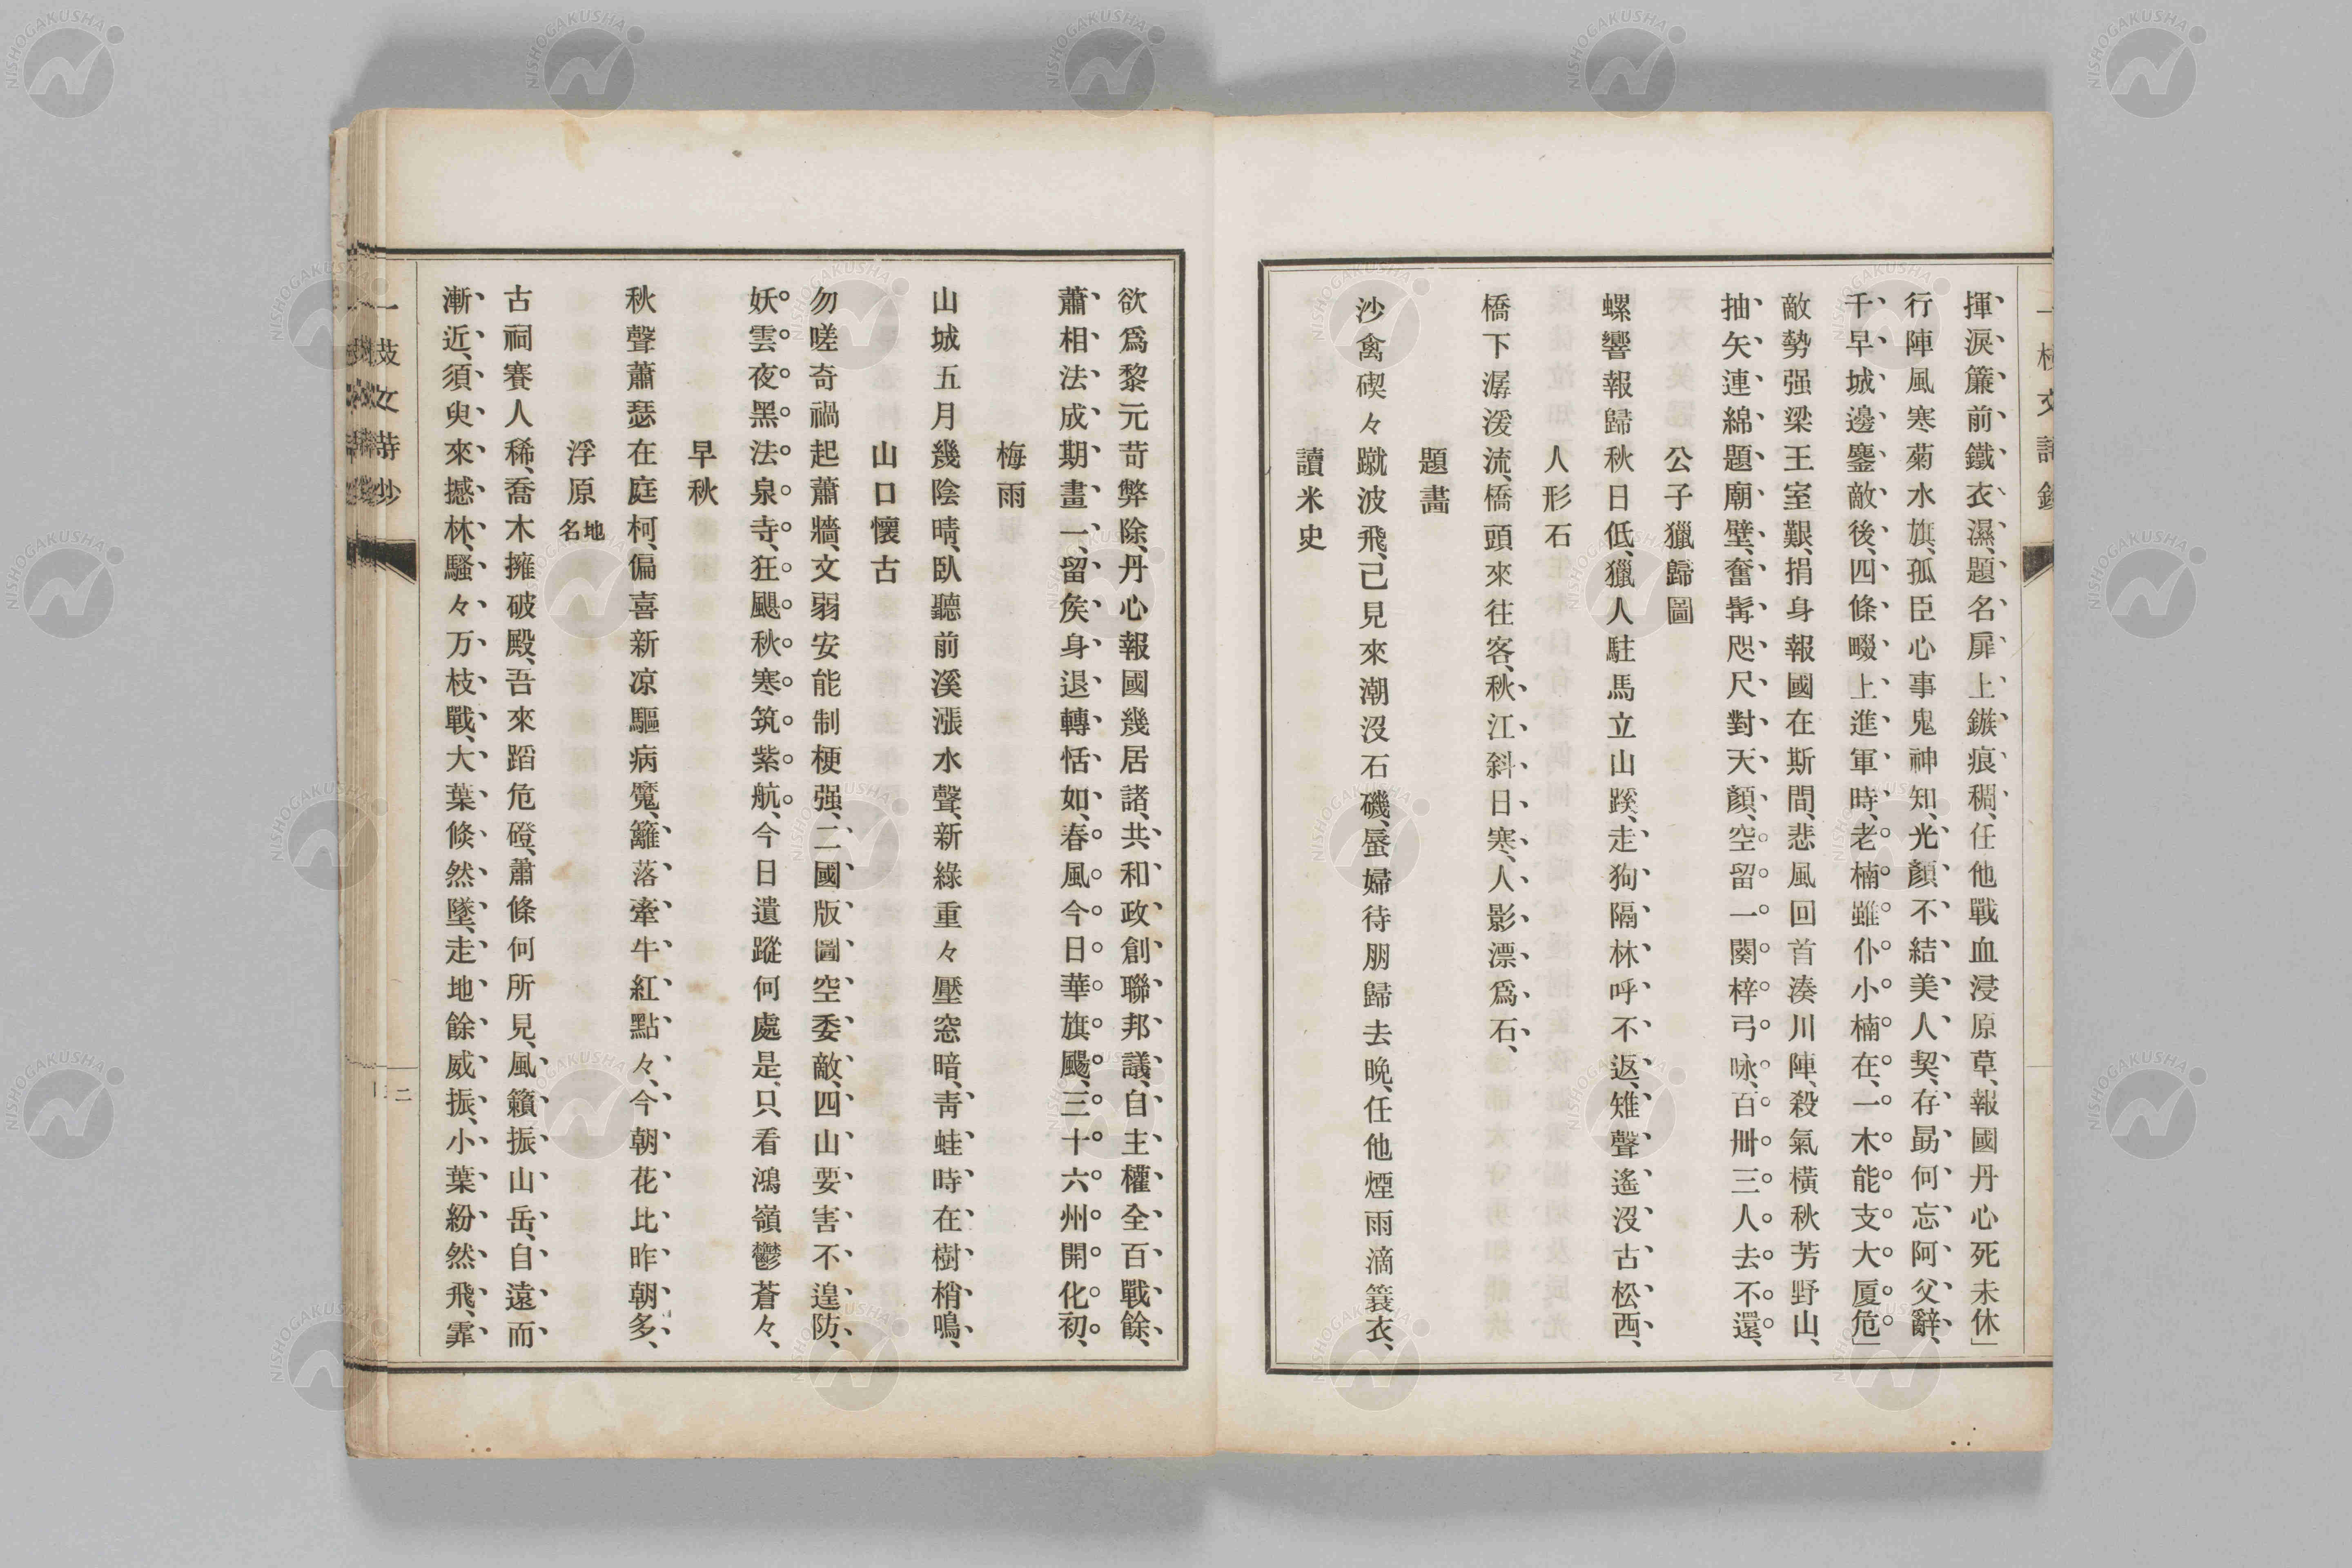 揮淚簾前鐵衣濕、題名扉上鏃痕稠、任他戰血浸原草、報國丹心死未休」
行陣風寒菊水旗、孤臣心事鬼神知、光顏不結美人契、存勗何忘阿父辭、
千早城邊鏖敵後、四條畷上進軍時、老楠雖仆小楠在、一木能支大厦危」
敵勢强梁王室艱、捐身報國在斯間、悲風回首湊川陣、殺氣橫秋芳野山、
抽矢連綿題廟壁、奮髯咫尺對天顏、空留一闋梓弓咏、百卌三人去不還、
公子獵歸圖
螺響報歸秋日低、獵人駐馬立山蹊、走狗隔林呼不返、雉聲遙沒古松西、
人形石
橋下潺湲流、橋頭來往客、秋江斜日寒、人影漂爲石、
題畵
沙禽礎々蹴波飛、已見來潮沒石磯、蜃婦待朋歸去晚、任他煙雨滴簑衣、
讀米史
欲爲黎元苛弊除、丹心報國幾居諸、共和政創聯邦議、自主權全百戰餘、
蕭相法成期畫一、留矦身退轉恬如、春風今日華旗颺、三十六州開化初、
梅雨
山城五月幾陰晴、臥聽前溪漲水聲、新綠重々壓窓暗、靑蛙時在樹梢鳴、
山口懷古
勿嗟奇禍起蕭牆、文弱安能制梗强、二國版圖空委敵、四山要害不遑防、
妖雲夜黑法泉寺、狂颶秋寒筑紫航、今日遺蹤何處是、只看鴻嶺鬱蒼々、
早秋
秋聲蕭瑟在庭柯、偏喜新凉驅病魔、籬落牽牛紅點々、今朝花比昨朝多、
浮原地名
古祠賽人稀、喬木擁破殿、吾來蹈危磴、蕭條何所見、風籟振山岳、自遠而
漸近、須臾來撼林、騷々万枝戰、大葉倏然墜、走地餘威振、小葉紛然飛、霏
二